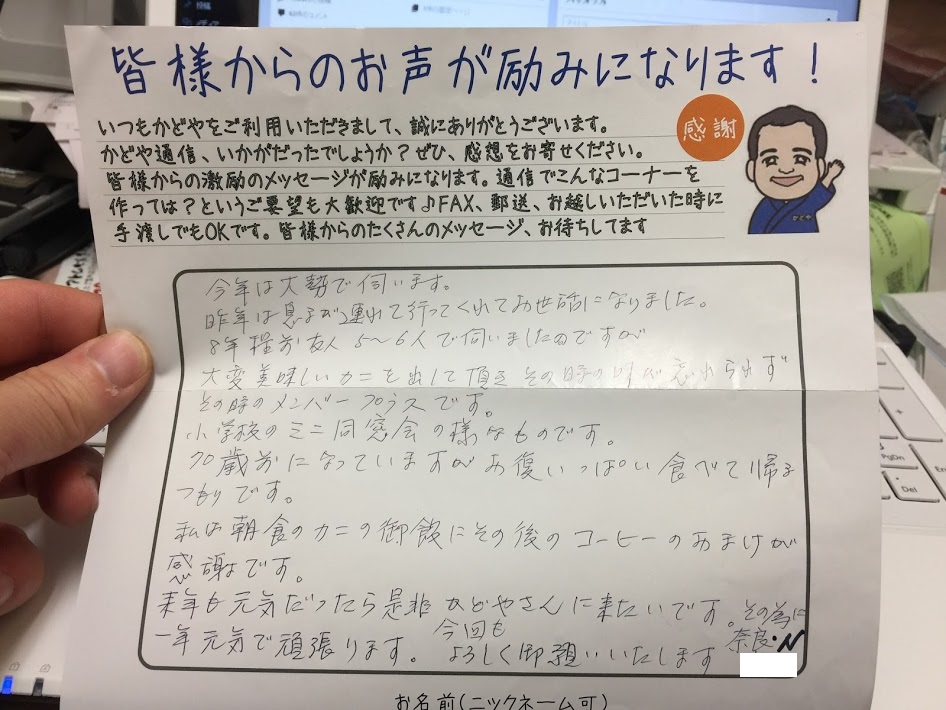 皆様からのお声が励みになります!
いつもかどやをご利用いただきまして、誠にありがとうございます。
かどや通信、いかがだったでしょうか?ぜひ、感想をお寄せください。
皆様からの激励のメッセージが励みになります。通信でこんなコーナーを
作っては?というご要望も大歓迎です♪FAX、郵送、お越しいただいた時に
手渡しでもOKです。皆様からのたくさんのメッセージ、お待ちしてます
感謝
かどや
今年は大勢で伺います。
昨年は息子が連れて行ってくれてお世話になりました。
8年程前友人5〜6人で伺いましたのですが
大変美味しいカニを出して頂きその時の味が忘れられず
その時のメンバープラスです。
小学校のミニ同窓会の様なものです。
70歳前になっていますがお復いっぱい食べて帰る
つもりです。
私は朝食のカニの御飯にその後のコーヒーのおまけが
感謝です。
来年も元気だったら是非かどやさんに来たいです。その為に
一年元気で頑張ります。今回もよろしく御願いいたします
奈良・N
お名前(ニックネーム可)
PgDn
Del